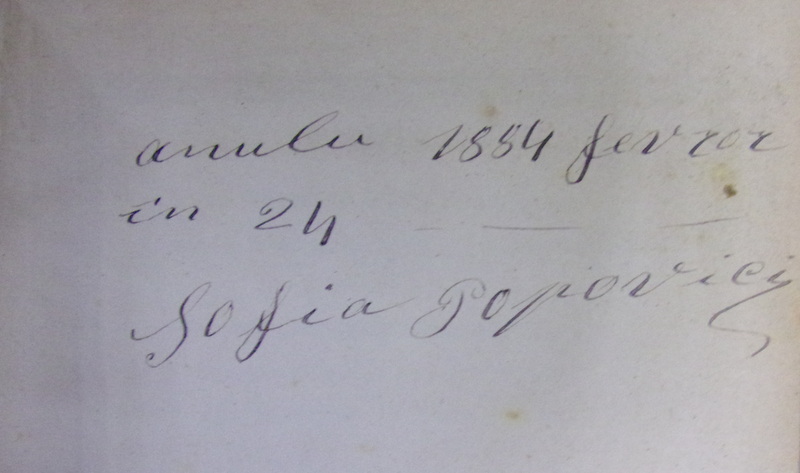 anulu 1884 fevror
in 24 — — —
Sofia Popovici